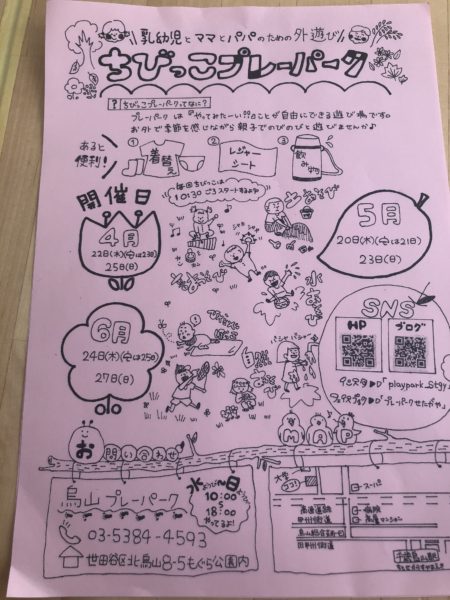 乳幼児とママとパパのための外遊び
ちびっこプレーパーク
?ちびっこプレーパークってなに?
プレーパークは『やってみたーい!?』のことが自由にできる遊び場です。
お外で季節を感じながら親子でのびのびと遊びませんか♪
あると便利!
① 着替え
② レジャーシート
③ 飲みもの
毎回ちびっこは
10:30ごろスタートするよ
開催日
4月
22日(木)(雨は23日)
25日(日)
5月
20日(木)(雨は21日)
23日(日)
6月
24日(木)(雨は25日)
27日(日)
水あそび
SNS
HP
ブログ
playpark_stgy
プレーパークせたがや
お問い合わせ
MAP
烏山プレーパーク
03-5384-4593
世田谷区北烏山8-5もぐら公園内
水ようび〜日ようび
10:00
18:00
やってるよ!
ココ!
スーパー
病院
高層マンション
高速道路
甲州街道
旧甲州街道
千歳烏山駅